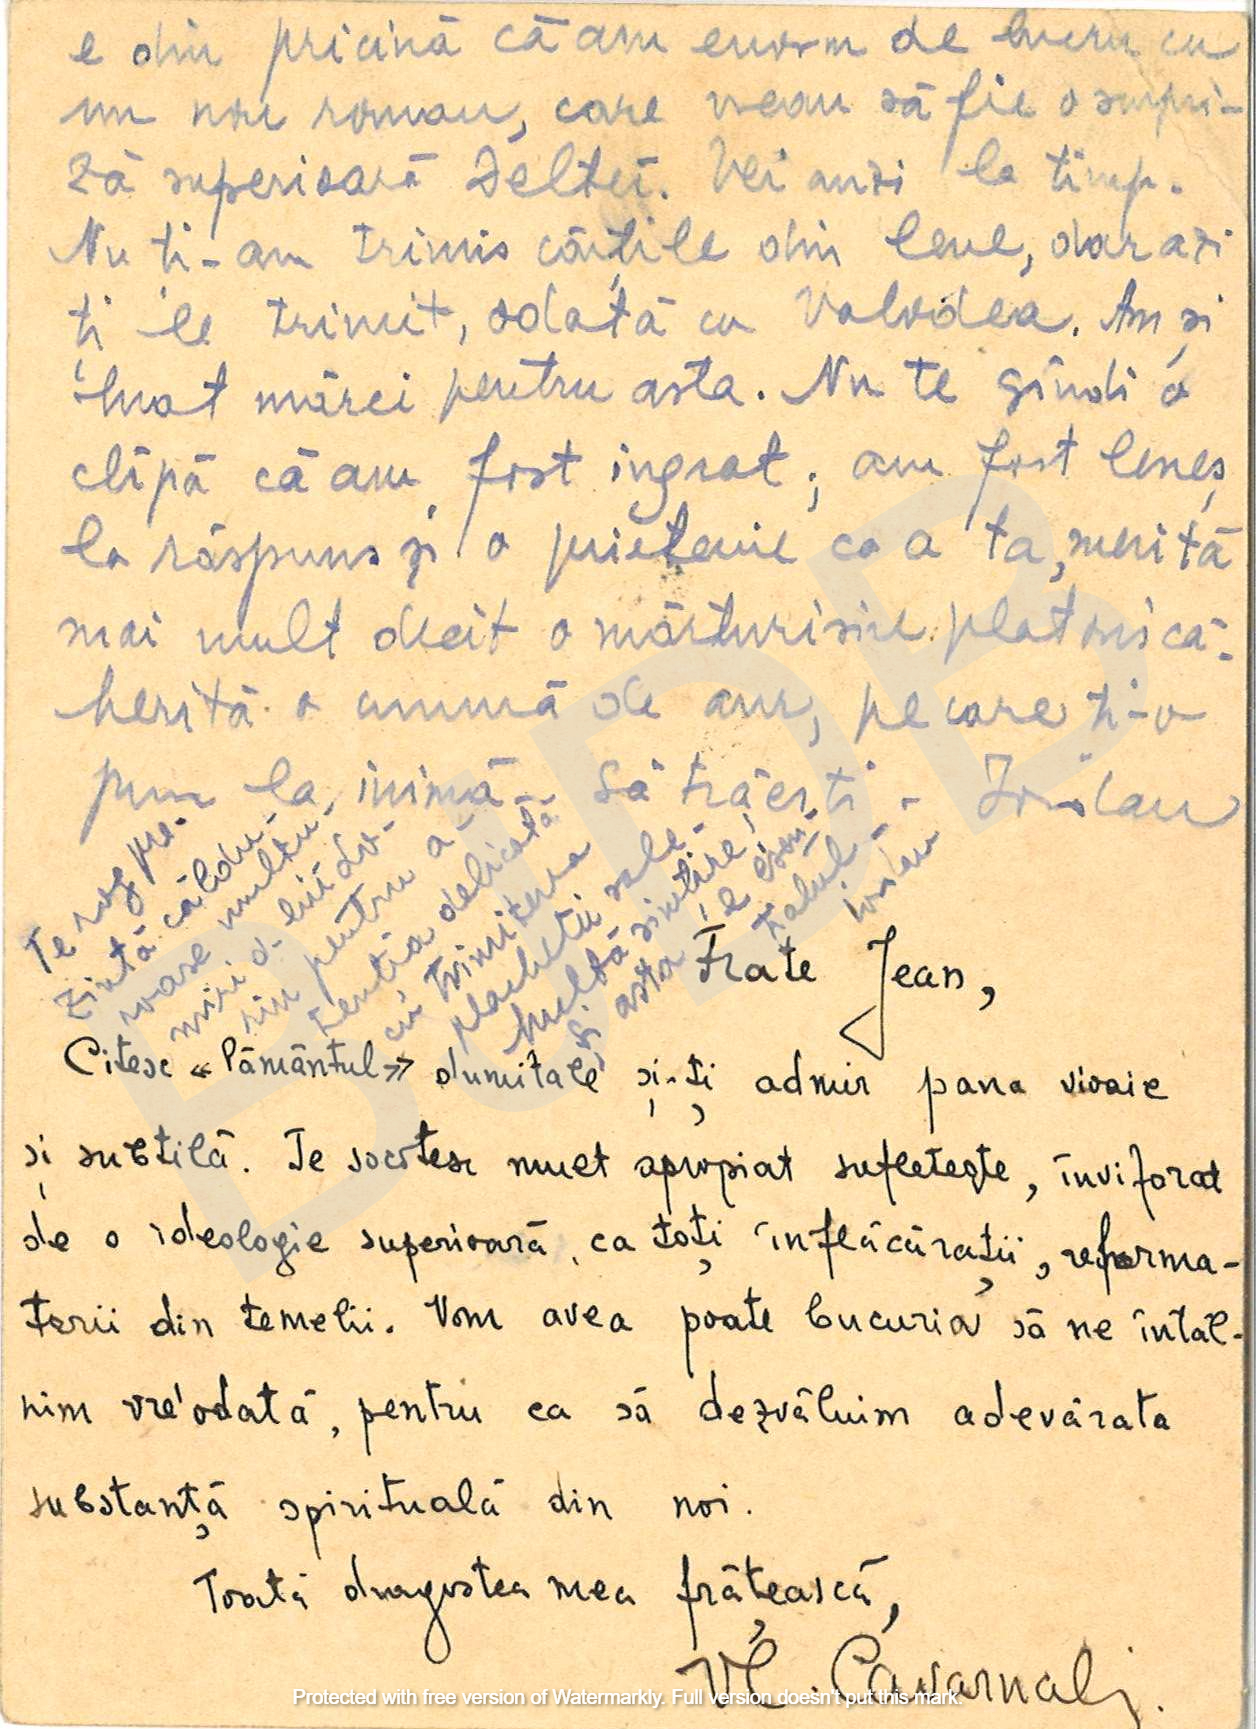 e din pricină că am enorm de lucru cu
un nou roman, care vreau să fie o surpri-
ză superioară Deltei. Vei auzi la timp.
Nu ți-am trimis cărțile din lene, dar azi
ți le trimit, odată cu Valvdea. Am și
luat mărci pentru asta. Nu te gîndi o
clipă că am fost ingrat; am fost leneș
la răspuns și o prietenie ca a ta, merită
mai mult decît o mărturisire platonică.
Merită o cunună de aur, pe care ți-o
pun la inimă. Să trăești - Iordan
Te rog pre-
zintă căldu-
roase mulțu-
miri d-lui Do-
rin pentru a-
tenția delicată
cu trimiterea
plachetii sale.
Multă simțire,
și asta e esen-
țialul -
Iordan
Frate Jean,
Citesc «Pământul» dumitale și-ți admir pana vioaie
și subtilă. Te socotesc mult apropiat sufletește, înviforat
de o ideologie superioară, ca toți înflăcărații, reforma-
torii din temelii. Vom avea poate bucuria să ne întâl-
nim vre'odată, pentru ca să dezvăluim adevărata
substanță spirituală din noi.
Toată dragostea mea frățească,
Vl. Cavarnali.
BJDB
Protected with free version of Watermarkly. Full version doesn't put this mark.